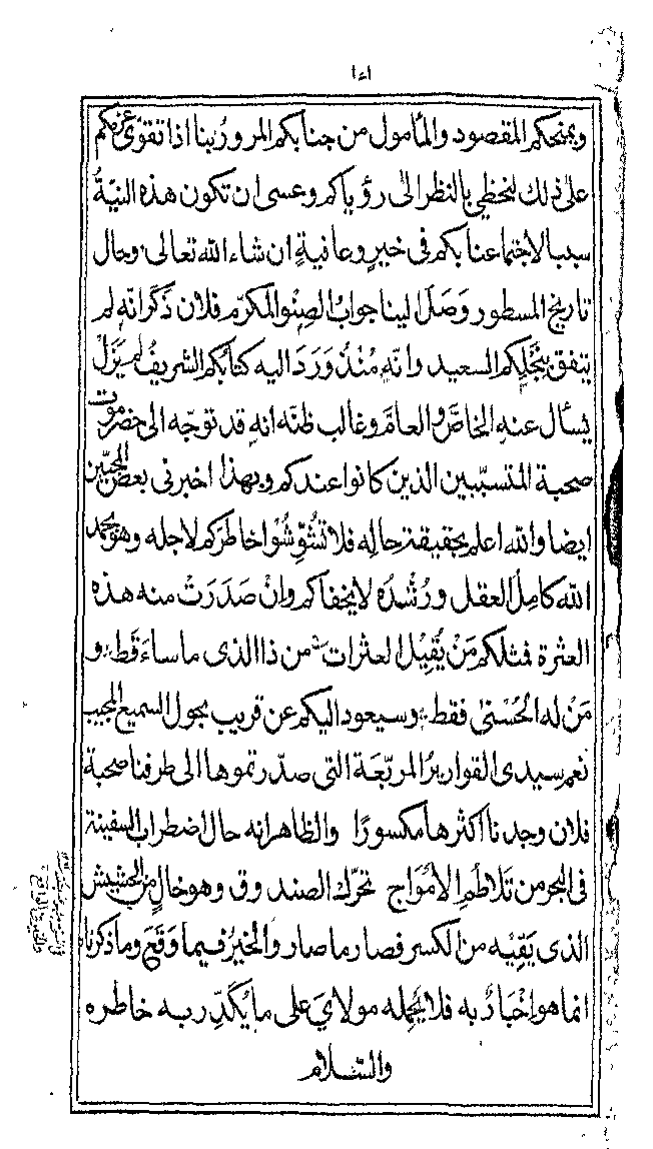 ١٥١
ويمنحكم المقصود والمأمول من جنابكم المرور بنا اذا تقوّى عزمكم
على ذلك لنحظي بالنظر الى رؤياكم وعسى ان تكون هذه النيّةُ
سببا لاجتماعنا بكم فى خيرٍ وعافيةٍ ان شاء الله تعالى وحال
تاريخ المسطور وَصَلَ الينا جوابُ الصِنْو المكرّم فلان ذَكَرَ انّه لم
يتفق بنَجْلِكم السعيد وانّه مُنْذُ وَرَدَ اليه كتابُكم الشريفُ لم يَزَلْ
يَسأل عنه الخاصَّ والعامَّ وغالب ظنّه انه قد توجّه الى حضرموت
صحبة المتسبّبين الذين كانوا عندكم وبهذا اخبرنى بعض المحبّين
ايضا والله اعلم بحقيقة حالِه فلا تُشَوِّشُوا خاطرَكم لاجله وهو بحمد
الله كامِلُ العقل ورُشْدُه لا يخفاكم وانْ صَدَرَتْ منه هذه
العثرة فمثلكم مَنْ يُقِيْلُ العثرات من ذا الذى ما ساءَ قَط و
مَنْ له الحُسْنىٰ فقط وسيعود اليكم عن قريب بحول السميع المجيب
نعم سيدى القواريرُ المربّعَة التى صدّرتموها الى طرفنا صحبة
فلان وجدنا اكثرها مكسورًا والظاهر انه حال اضطراب السفينة
فى البحر من تَلَاطُمِ الأَمْوَاج تحرَّك الصندوق وهو خالٍ من الحشيش
الذى يَقِيْه من الكسر فصار ما صار والخيرُ فيما وَقَعَ وما ذكرناه
انما هو اخْبَارٌ به فلا يَحْمِله مولايَ على ما يُكَدِّر به خاطره
والسّلام